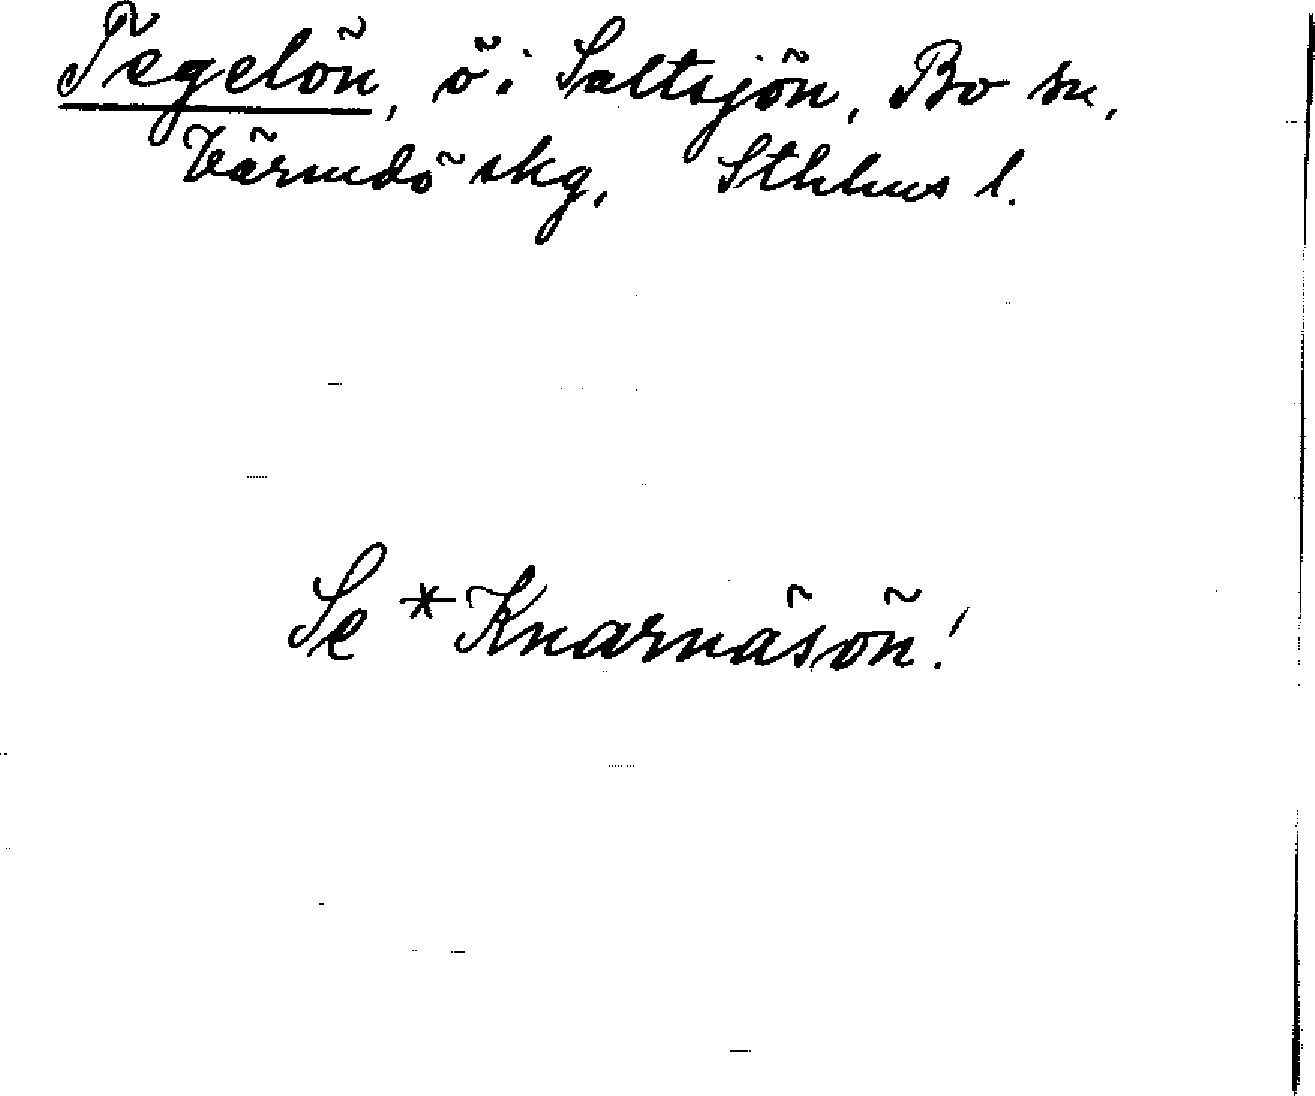 Tegelön, ö i Saltsjön, Bo sn,
Värmdö skg, Sthlms l.
Se *Knarnäsön!